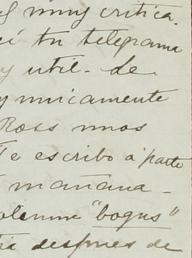 muy critica.
tu telegrama
y util. de
unicamente
Ross unos
Te escribo aparte
mañana -
solemne "bogus"
despues de